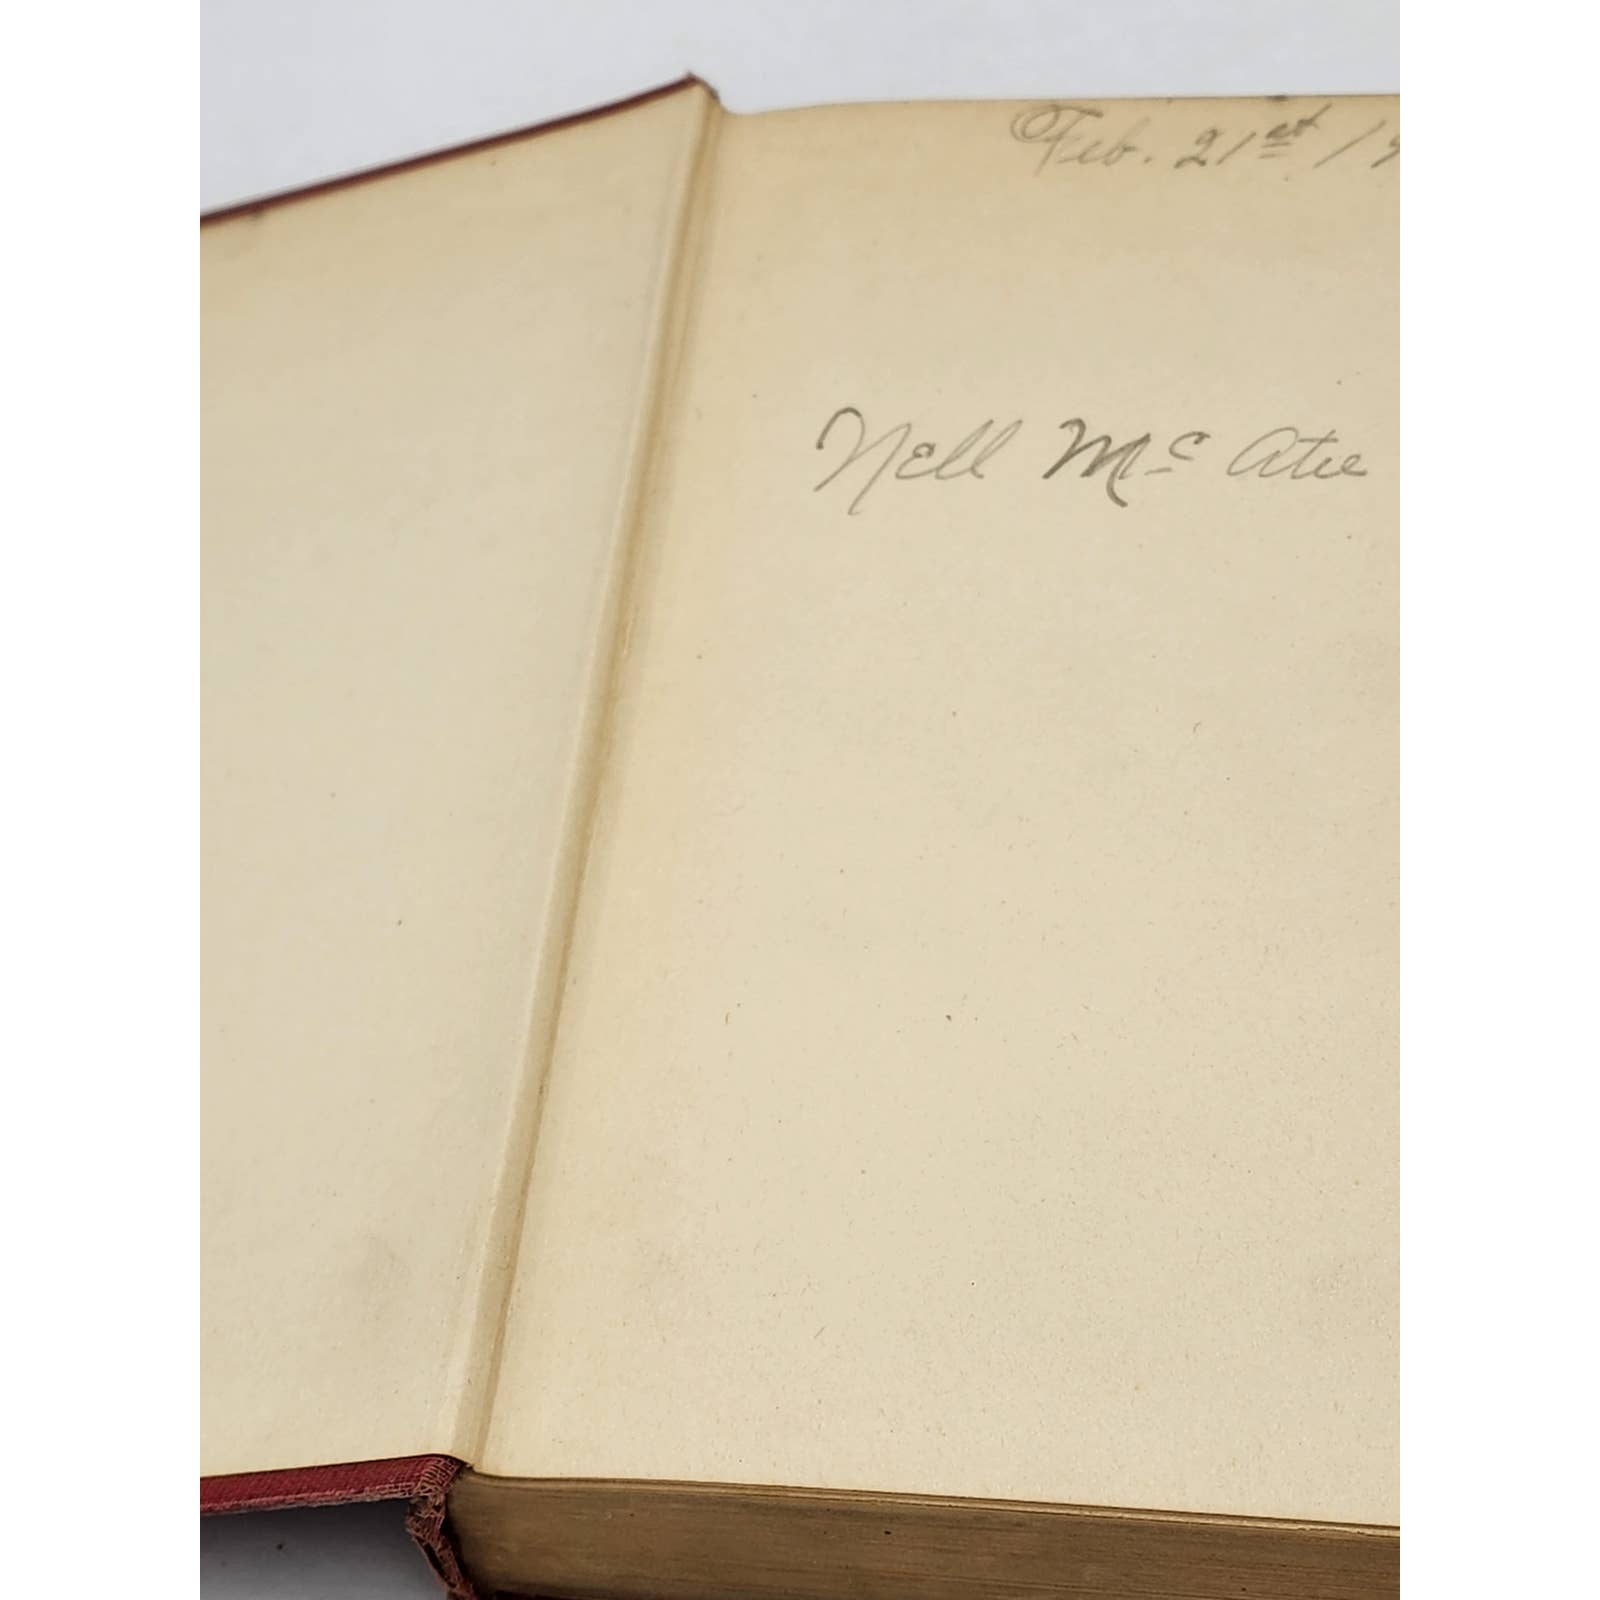 Feb. 21st / 9
Nell Mc Atee